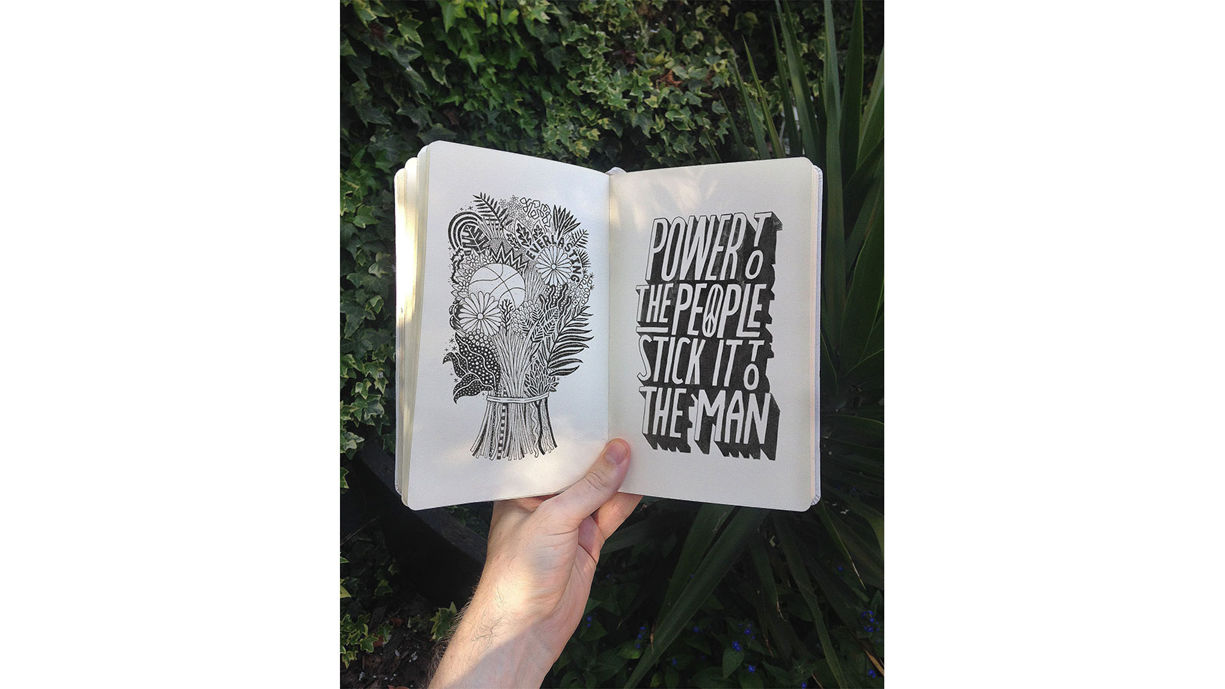 EVERLASTING
POWER TO
THE PEOPLE
STICK IT TO
THE MAN